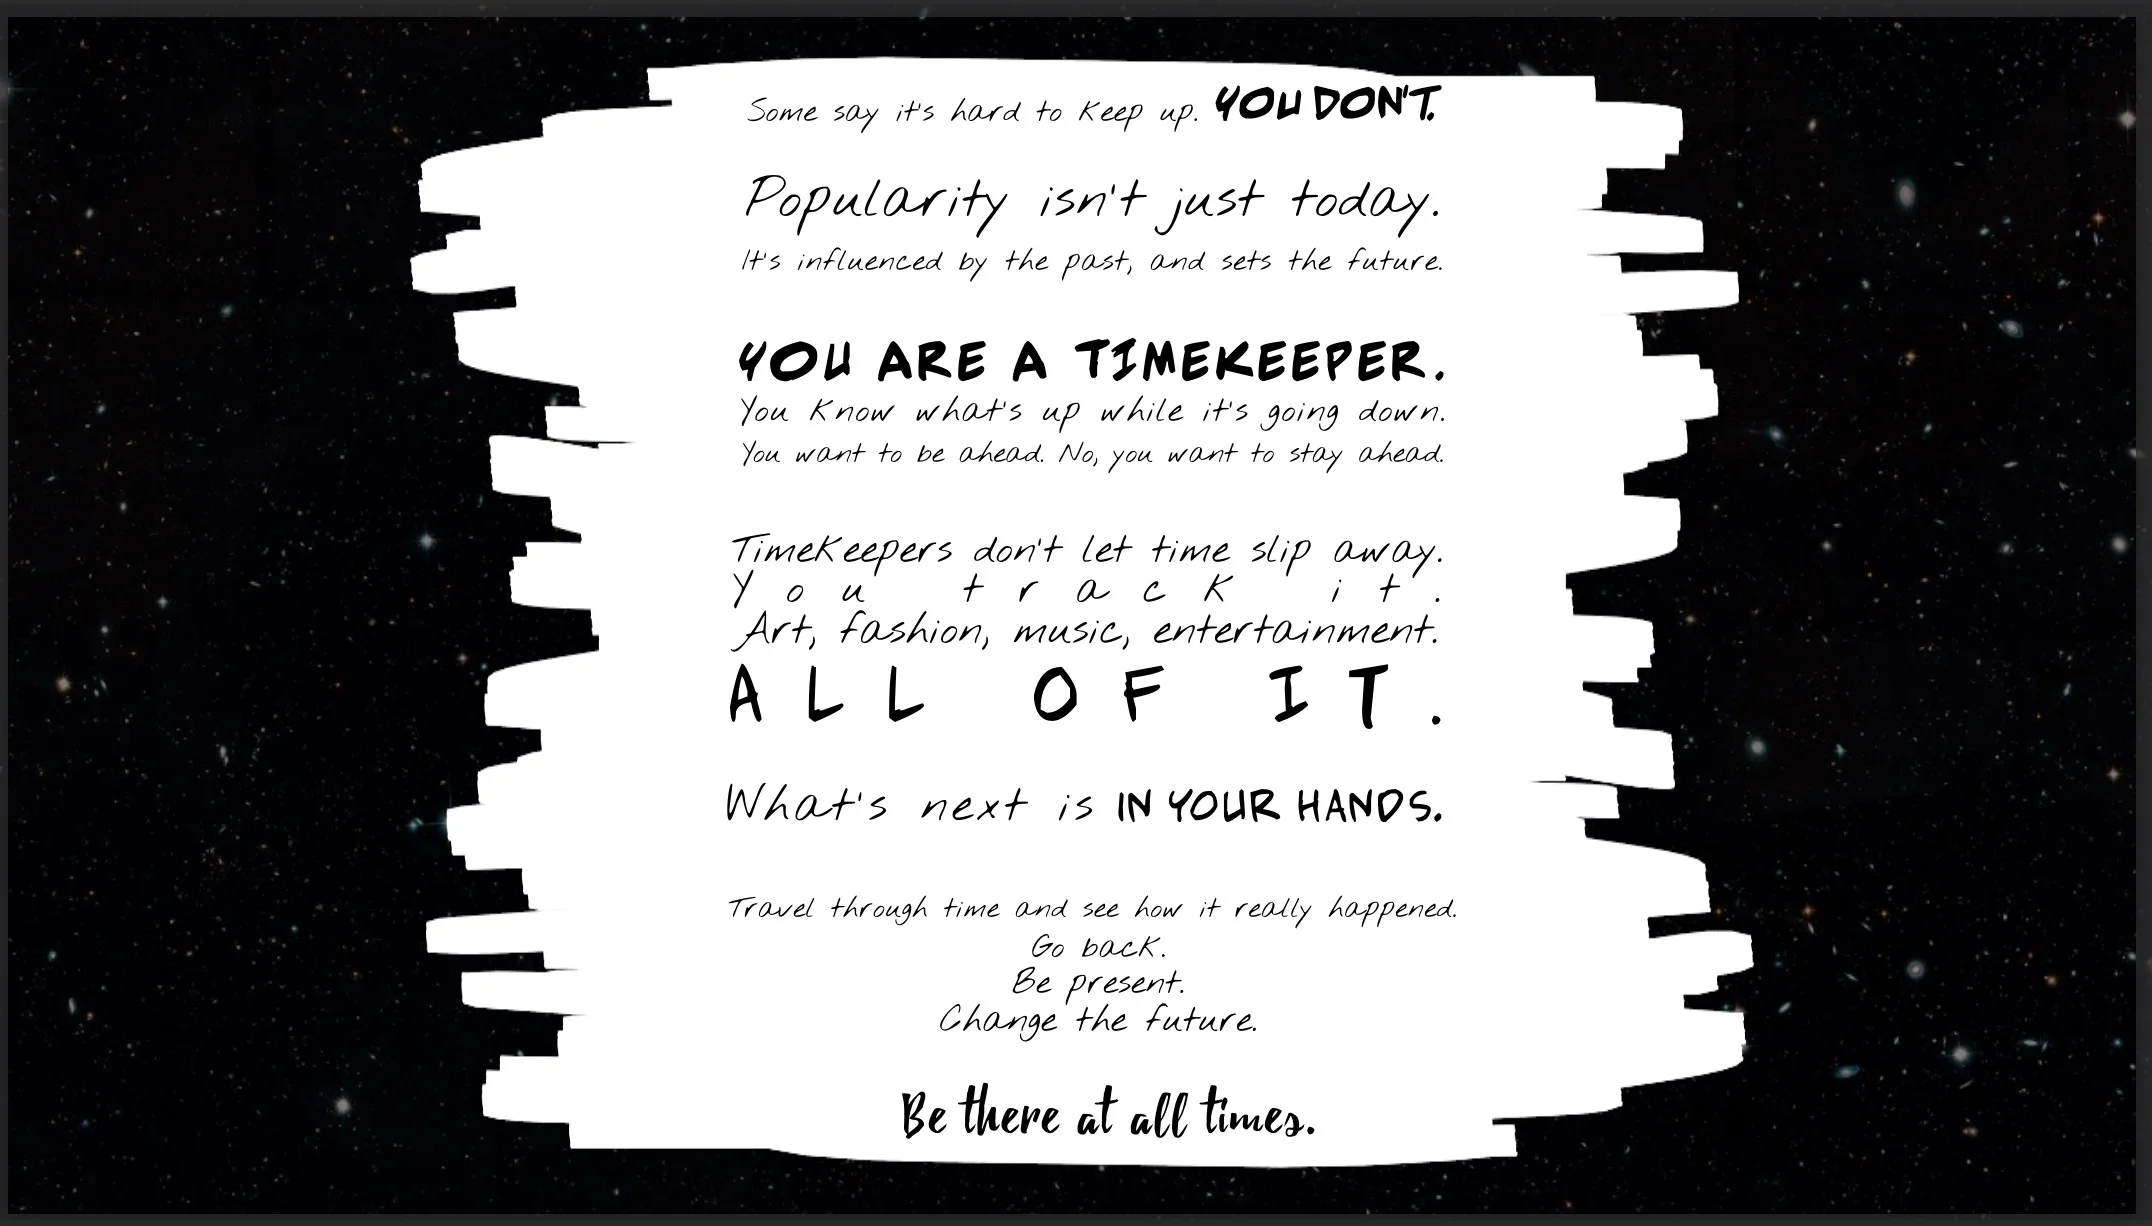 Some say it's hard to keep up. YOU DON'T.
Popularity isn't just today.
It's influenced by the past, and sets the future.
YOU ARE A TIMEKEEPER.
You know what's up while it's going down.
You want to be ahead. No, you want to stay ahead.
Timekeepers don't let time slip away.
You track it.
Art, fashion, music, entertainment.
ALL OF IT.
What's next is IN YOUR HANDS.
Travel through time and see how it really happened.
Go back.
Be present.
Change the future.
Be there at all times.